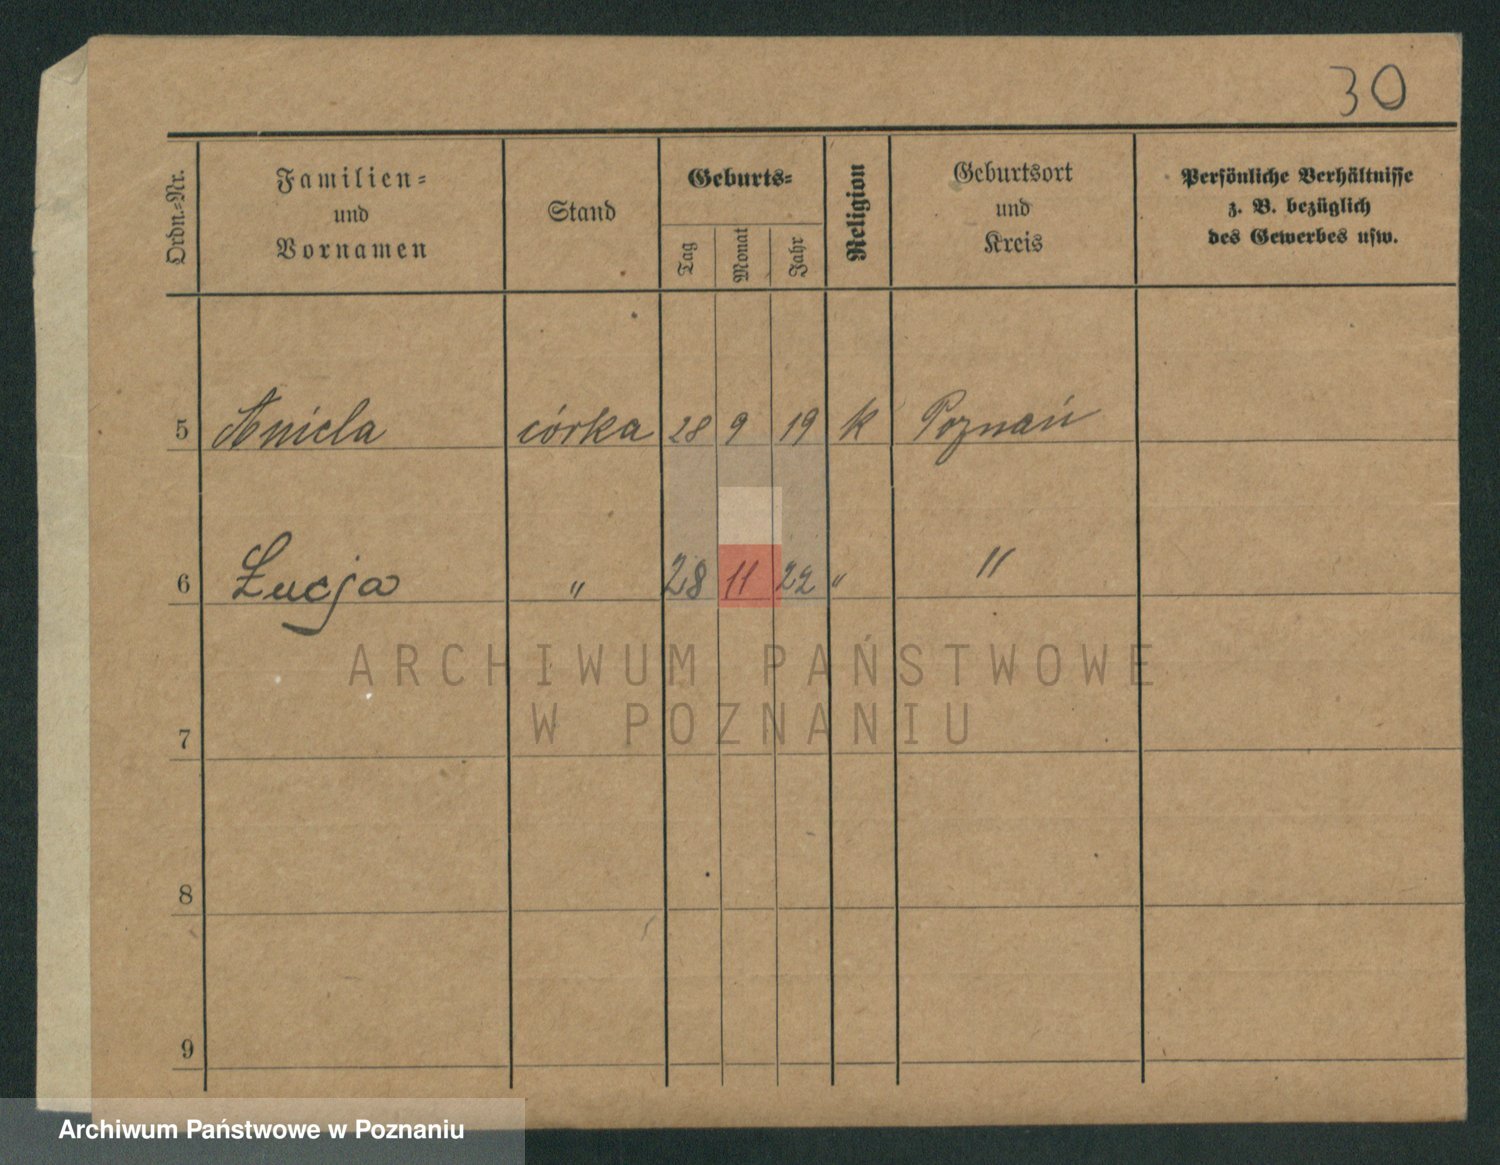 30
Ordn.-Nr.
Familien-
und
Vornamen
Stand
Geburts-
Tag
Monat
Jahr
Religion
Geburtsort
und
Kreis
Persönliche Verhältnisse
z. B. bezüglich
des Gewerbes usw.
5 Aniela córka 28 9 19 k Poznań
6 Łucja " 28 11 22 " "
ARCHIWUM PAŃSTWOWE
W POZNANIU
7
8
9
Archiwum Państwowe w Poznaniu